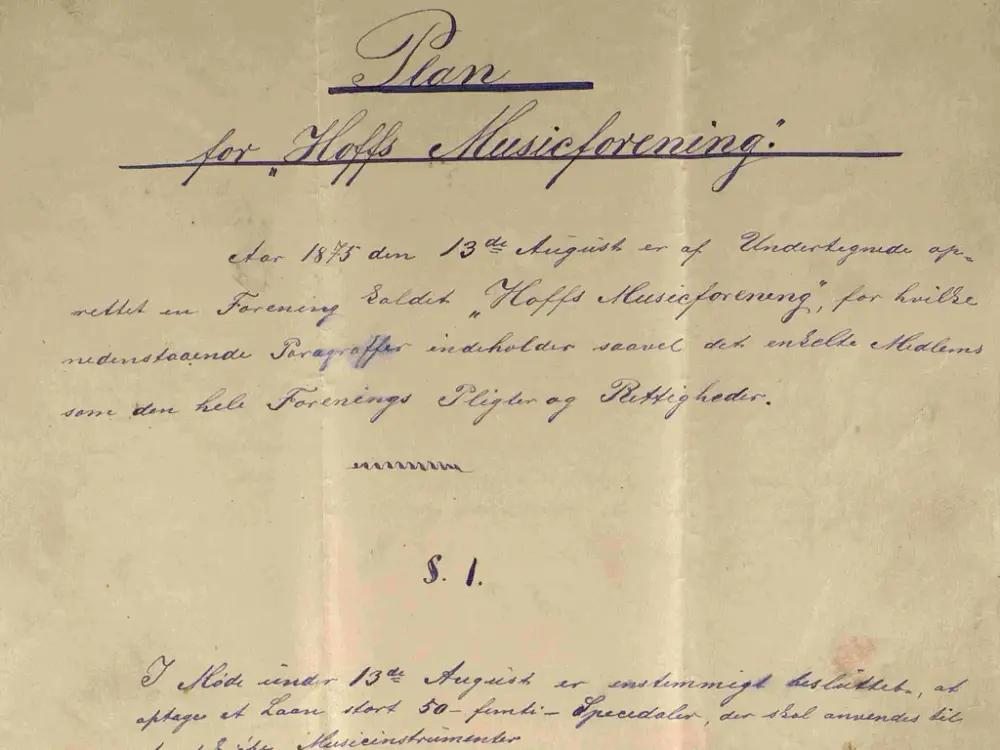 Plan
for „Hoffs Musicforening".
Aar 1875 den 13de August er af Undertegnede op-
rettet en Forening kaldet „Hoffs Musicforening", for hvilke
nedenstaaende Paragraffer indeholder saavel det enkelte Medlems
som den hele Forenings Pligter og Rettigheder.
§. 1.
I Møde undr 13de August er enstemmigt besluttet, at
optage et Laan stort 50 - femti - Specedaler, der skal anvendes til
Musicinstrumenter